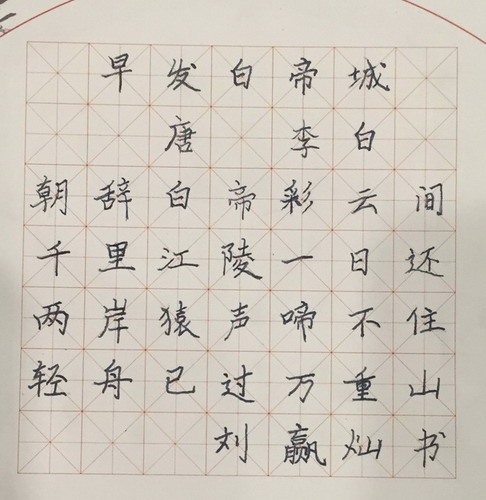 早发白帝城
唐 李白
朝辞白帝彩云间
千里江陵一日还
两岸猿声啼不住
轻舟已过万重山
刘赢灿书